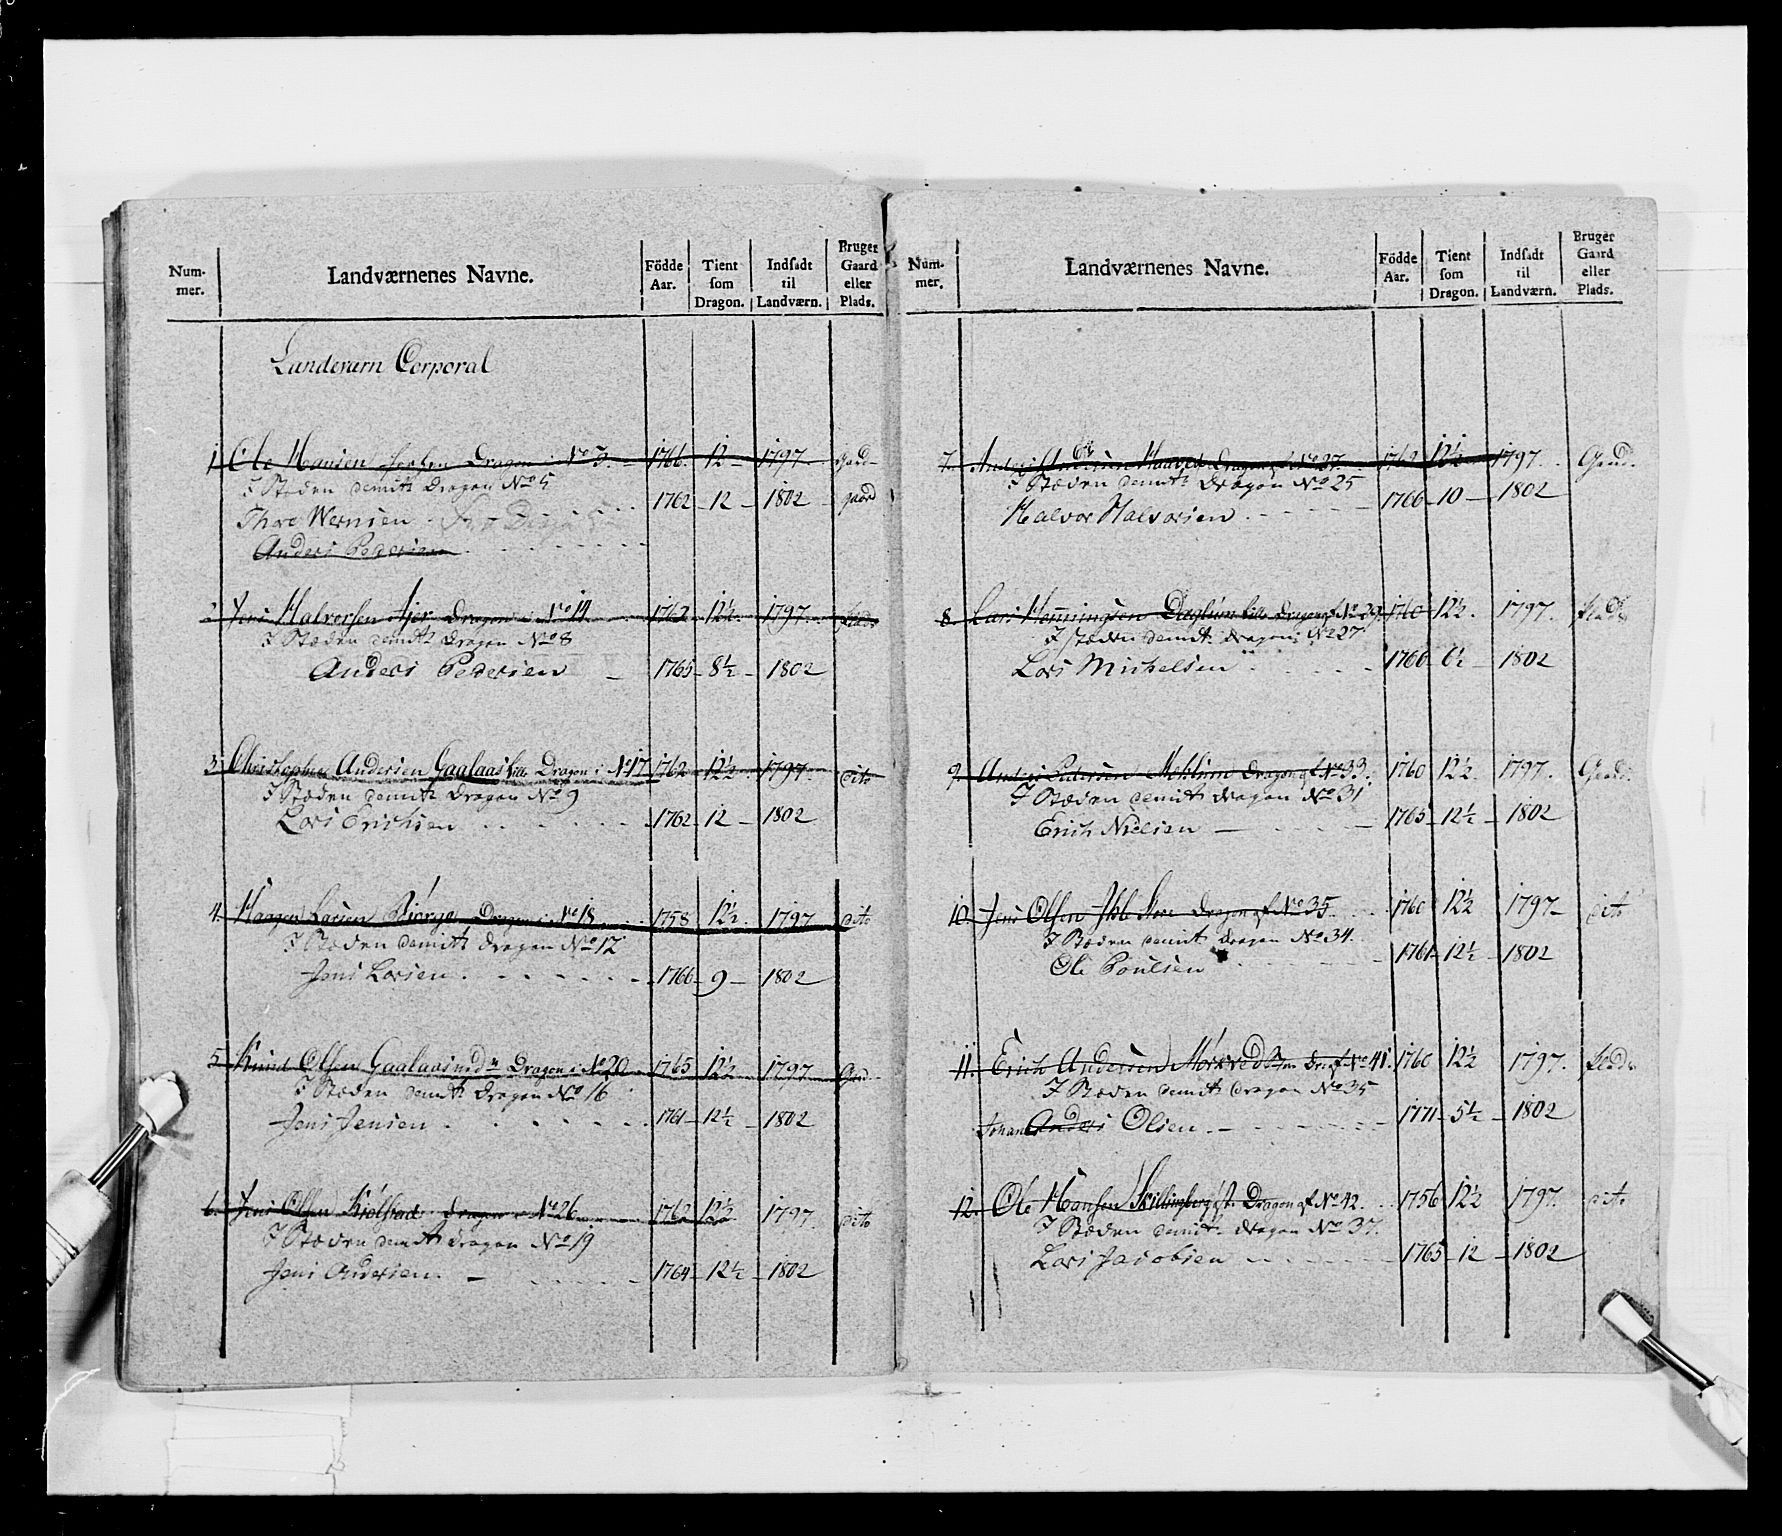 Num-
mer.
Landværnenes Navne.
Födde
Aar.
Tient
som
Dragon.
Indsadt
til
Landværn.
Bruger
Gaard
eller
Plads.
Landeværn Corporal
1 Ole Hansen Dragon i No 3. 1766. 12 1797. Gaard
I Stæden demitt Dragon No 5
Thore Wernsen 1762 12 1802 gaard
Anders Pedersen
2. Jens Halvorsen Ajer Dragon i No 14 1762 12½ 1797. Plads
I Stæden demitt Dragon No 8
Anders Pedersen 1765 8½ 1802
3. Christopher Andersen Gaalaas Dragon i No 17 1762 12½ 1797. dito
I Stæden demitt Dragon No 9
Lars Erichsen 1762 12 1802
4. Haagen Larsen Biørge Dragon i No 18 1758 12½ 1797 dito
I Stæden demitt Dragon No 12
Jens Larsen 1766 9 1802
5. Knud Olsen Gaalaas Dragon i No 20 1765 12½ 1797 Gaard
I Stæden demitt Dragon No 16
Jens Jensen 1761 12½ 1802
6. Jens Olsen Kiølstad Dragon No 26 1762 12½ 1797. dito
I Stæden demitt Dragon No 19
Jens Andersen 1764 12½ 1802
Num-
mer.
Landværnenes Navne.
Födde
Aar.
Tient
som
Dragon.
Indsadt
til
Landværn.
Bruger
Gaard
eller
Plads.
7. Anders Andersen Dragon af No 27. 1762 12½ 1797. Gaard.
I Stæden demitt Dragon No 25
Halvor Halvorsen 1766 10 1802
8. Lars Henningsen Dæhlum Dragon af No 29. 1760 12½. 1797. Plads
I Stæden demitt Dragon No 27
Lars Michelsen 1766 6½ 1802
9. Anders Pedersen Dragon af No 33. 1760 12½. 1797. Gaard.
I Stæden demitt Dragon No 31
Erich Nielsen 1765 12½ 1802
10. Jens Olsen Dragon af No 35. 1760 12½ 1797 dito
I Stæden demitt Dragon No 34.
Ole Poulsen 1761 12½ 1802
11. Erich Andersen af No 41. 1760 12½ 1797. Plads
I Stæden demitt Dragon No 35
Johan Anders Olsen. 1771 5½ 1802
12. Ole Hansen Dragon af No 42. 1756 12½ 1797. dito
I Stæden demitt Dragon No 37.
Lars Jacobsen 1765 12 1802